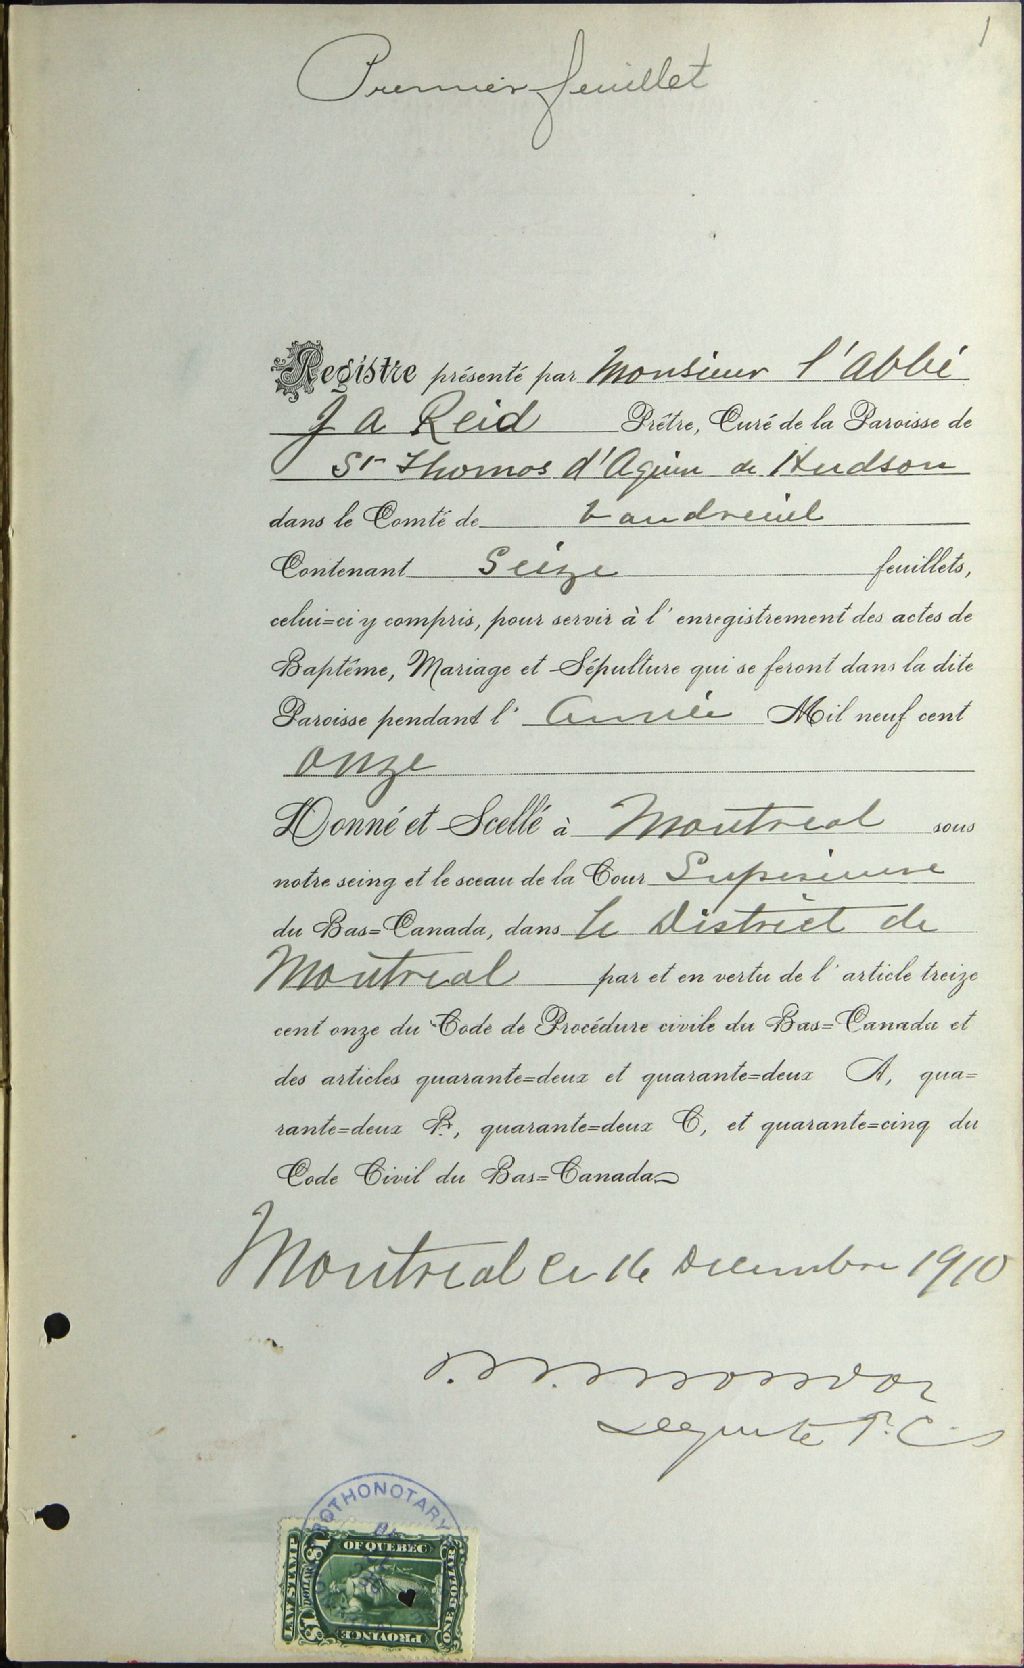 1
Premier feuillet
Registre présenté par Monsieur l'Abbé
J A Reid Prêtre, Curé de la Paroisse de
St Thomas d'Aquin de Hudson
dans le Comté de Vaudreuil
Contenant Seize feuillets,
celui=ci y compris, pour servir à l'enregistrement des actes de
Baptême, Mariage et Sépulture qui se feront dans la dite
Paroisse pendant l'année Mil neuf cent
onze
Donné et Scellé à Montreal sous
notre seing et le sceau de la Cour Supérieure
du Bas=Canada, dans le District de
Montreal par et en vertu de l'article treize
cent onze du Code de Procédure civile du Bas=Canada et
des articles quarante=deux et quarante=deux A, qua=
rante=deux B, quarante=deux C, et quarante=cinq du
Code Civil du Bas=Canada
Montreal ce 16 Decembre 1910
PROTHONOTARY
LAW STAMP
$1 DOLLAR
OF QUEBEC
$1
ONE DOLLAR
PROVINCE